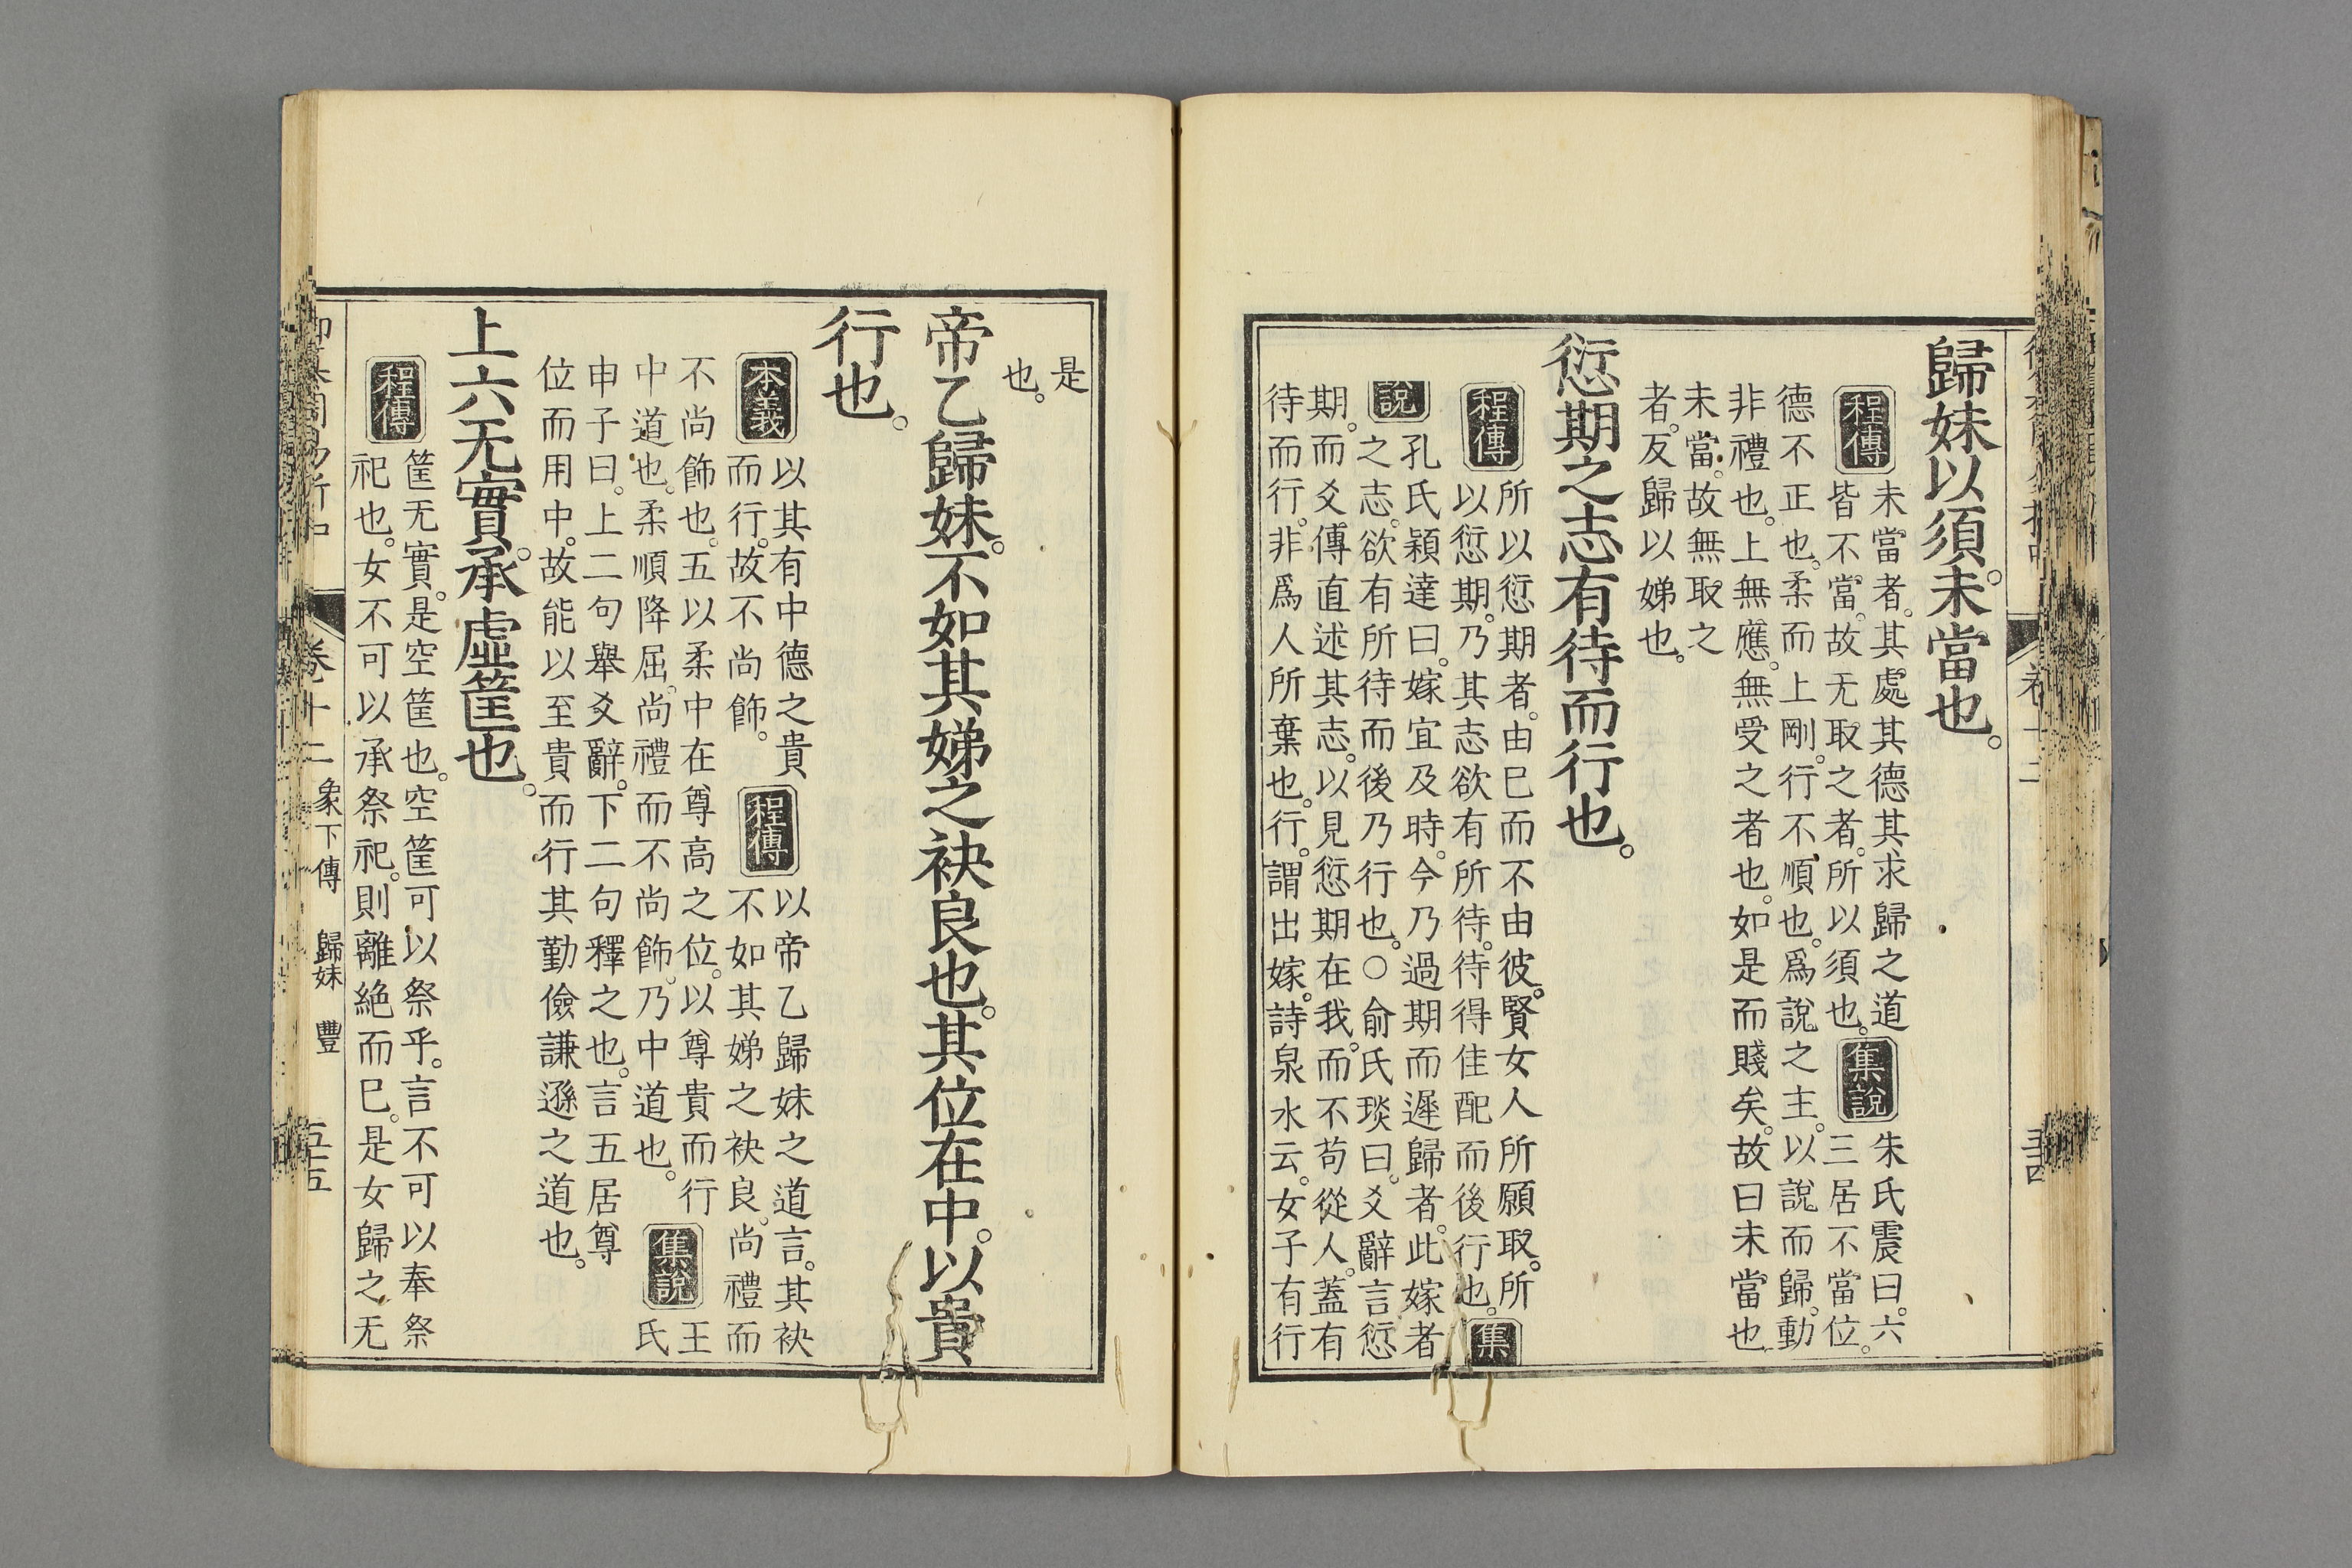 歸妹以須。未當也。
程傳
未當者。其處其德其求歸之道
皆不當。故无取之者。所以須也。
集說
朱氏震曰。六
三居不當位。
德不正也。柔而上剛。行不順也。爲說之主。以說而歸。動
非禮也。上無應。無受之者也。如是而賤矣。故曰未當也
未當。故無取之
者。反歸以娣也。
愆期之志有待而行也。
程傳
所以愆期者。由巳而不由彼。賢女人所願取。所
以愆期。乃其志欲有所待。待得佳配而後行也。
集
說
孔氏穎達曰。嫁宜及時。今乃過期而遲歸者。此嫁者
之志。欲有所待而後乃行也。○俞氏琰曰。爻辭言愆
期。而爻傳直述其志。以見愆期在我。而不苟從人。蓋有
待而行。非爲人所棄也。行。謂出嫁。詩泉水云。女子有行
卷十二
是
也。
帝乙歸妹。不如其娣之袂良也。其位在中。以貴
行也。
本義
以其有中德之貴
而行。故不尚飾。
程傳
以帝乙歸妹之道言。其袂
不如其娣之袂良。尚禮而
不尚飾也。五以柔中在尊高之位。以尊貴而行
中道也。柔順降屈。尚禮而不尚飾。乃中道也。
集說
王
氏
申子曰。上二句舉爻辭。下二句釋之也。言五居尊
位而用中。故能以至貴而行其勤儉謙遜之道也。
上六无實。承虛筐也。
程傳
筐无實。是空筐也。空筐可以祭乎。言不可以奉祭
祀也。女不可以承祭祀。則離絕而巳。是女歸之无
卷十二 象下傳 歸妹 豐